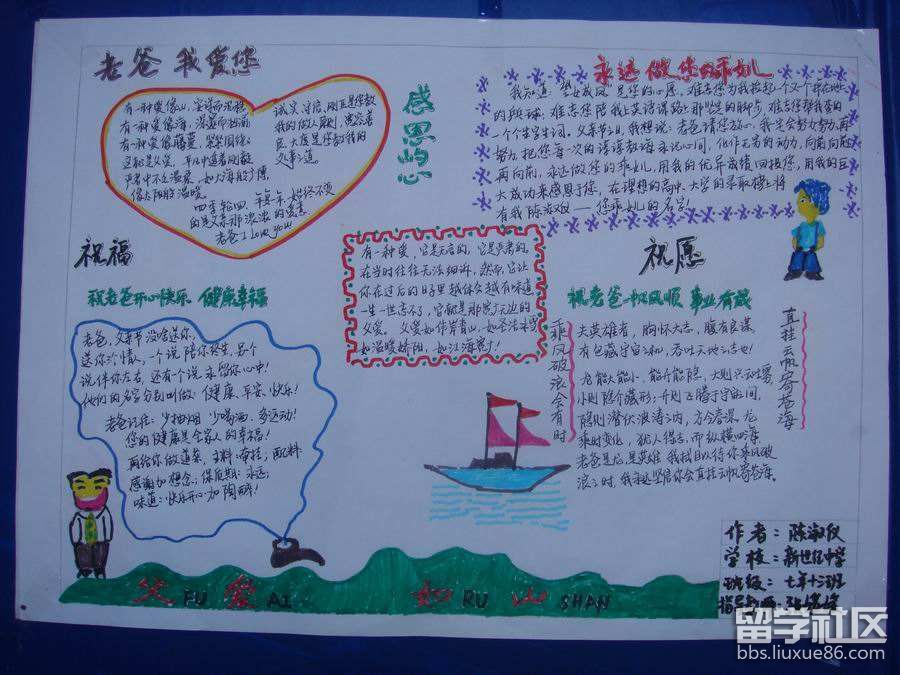 老爸 我爱您
有一种爱像山，坚定而沉稳
有一种爱像海，深蓝而
有一种爱像藤蔓，紧紧围你
这就是父爱，平凡中透着刚毅
严肃中不乏温柔，如大海般
像太阳般温暖
四季轮回，年复一年，始终不变
的是父亲那浓浓的
老爸 I Love you
诚实、守信、刚正是您教
我的做人原则；宽容豁
达、大度是您教我的
处事之道。
感恩的心
永远做您的乖女儿
我知道，望女成凤，是您的心愿，难忘您为我
的，难忘您陪我上英语课踏上那坚定的脚步，难忘您帮我拿的
一个个生字生词，父亲节之日，我想说：老爸请您放心，我定会努力努力再
努力，把您每一次的谆谆教诲永记心间，化作无穷的动力，向前向前
再向前，永远做您的乖女儿，用我的优异成绩回报您，用我的巨
大成功来感恩于您，在理想的高中、大学的录取榜上将
有我陈淑仪——您乖女儿的名字！
祝福
祝老爸开心快乐 健康幸福
老爸，父亲节没啥送你，
送你个情人，一个说陪你终生，另个
说伴你左右，还有个说永留你心中！
他们的名字分别叫做：健康、平安、快乐！
老爸记住：少抽烟 少喝酒，多运动！
您的健康是全家人的幸福！
再给你做道菜，主料：牵挂，配料：
感谢加想念，保质期：永远，
味道：快乐开心加陶醉！
有一种爱，它是无言的，它是严肃的，
在当时往往无法细诉，然而，它让
你在过后的日子里越体会越有味道
一生一世忘不了，它就是那宽广无边的
父爱，父爱如伟岸青山，如
如温暖娇阳，如江海
祝愿
祝老爸一帆风顺 事业有成
乘风破浪会有时
夫英雄者，胸怀大志，腹有良谋
有包藏宇宙之机，吞吐天地之志也！
老爸龙能大能小，能升能隐，大则兴云吐雾，
小则隐介藏形；升则飞腾于宇宙间，
隐则潜伏波涛之内，方今春深，龙
乘时变化，犹人得志，而纵横四海
老爸是龙，是英雄，我拭目以待你乘风破
浪之时，我永远坚信你会直挂云帆济沧海。
直挂云帆济沧海
作者：陈淑仪
学校：新世纪中学
班级：七年十二班
指导教师：
父 FU 爱 AI 如 RU 山 SHAN
留学社区
bbs.liuxue86.com